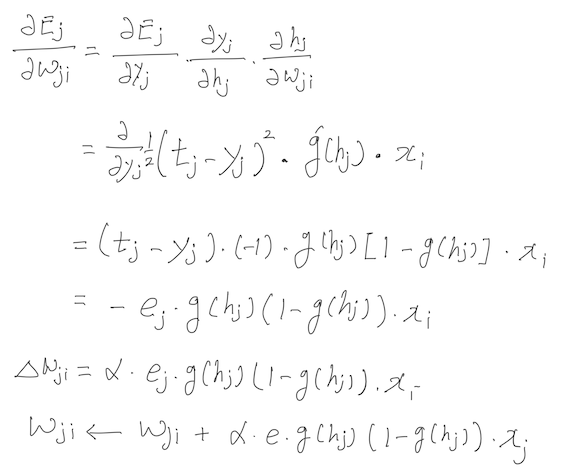 ∂E_j/∂w_ji = ∂E_j/∂y_j · ∂y_j/∂h_j · ∂h_j/∂w_ji
= ∂/∂y_j ½(t_j − y_j)² · g′(h_j) · x_i
= (t_j − y_j) · (−1) · g(h_j)[1 − g(h_j)] · x_i
= − e_j · g(h_j)(1 − g(h_j)) · x_i
△w_ji = α · e_j · g(h_j)(1 − g(h_j)) · x_i
w_ji ← w_ji + α · e · g(h_j)(1 − g(h_j)) · x_j